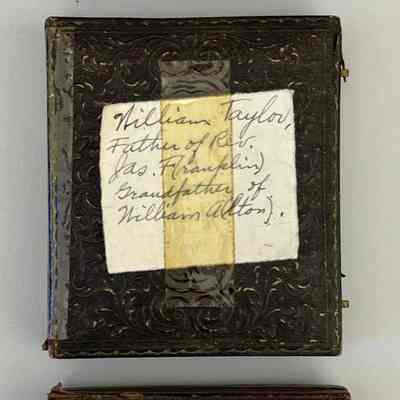 William Taylor,
Father of Rev.
Jas. F(ranklin)
Grandfather of
William A(lton).